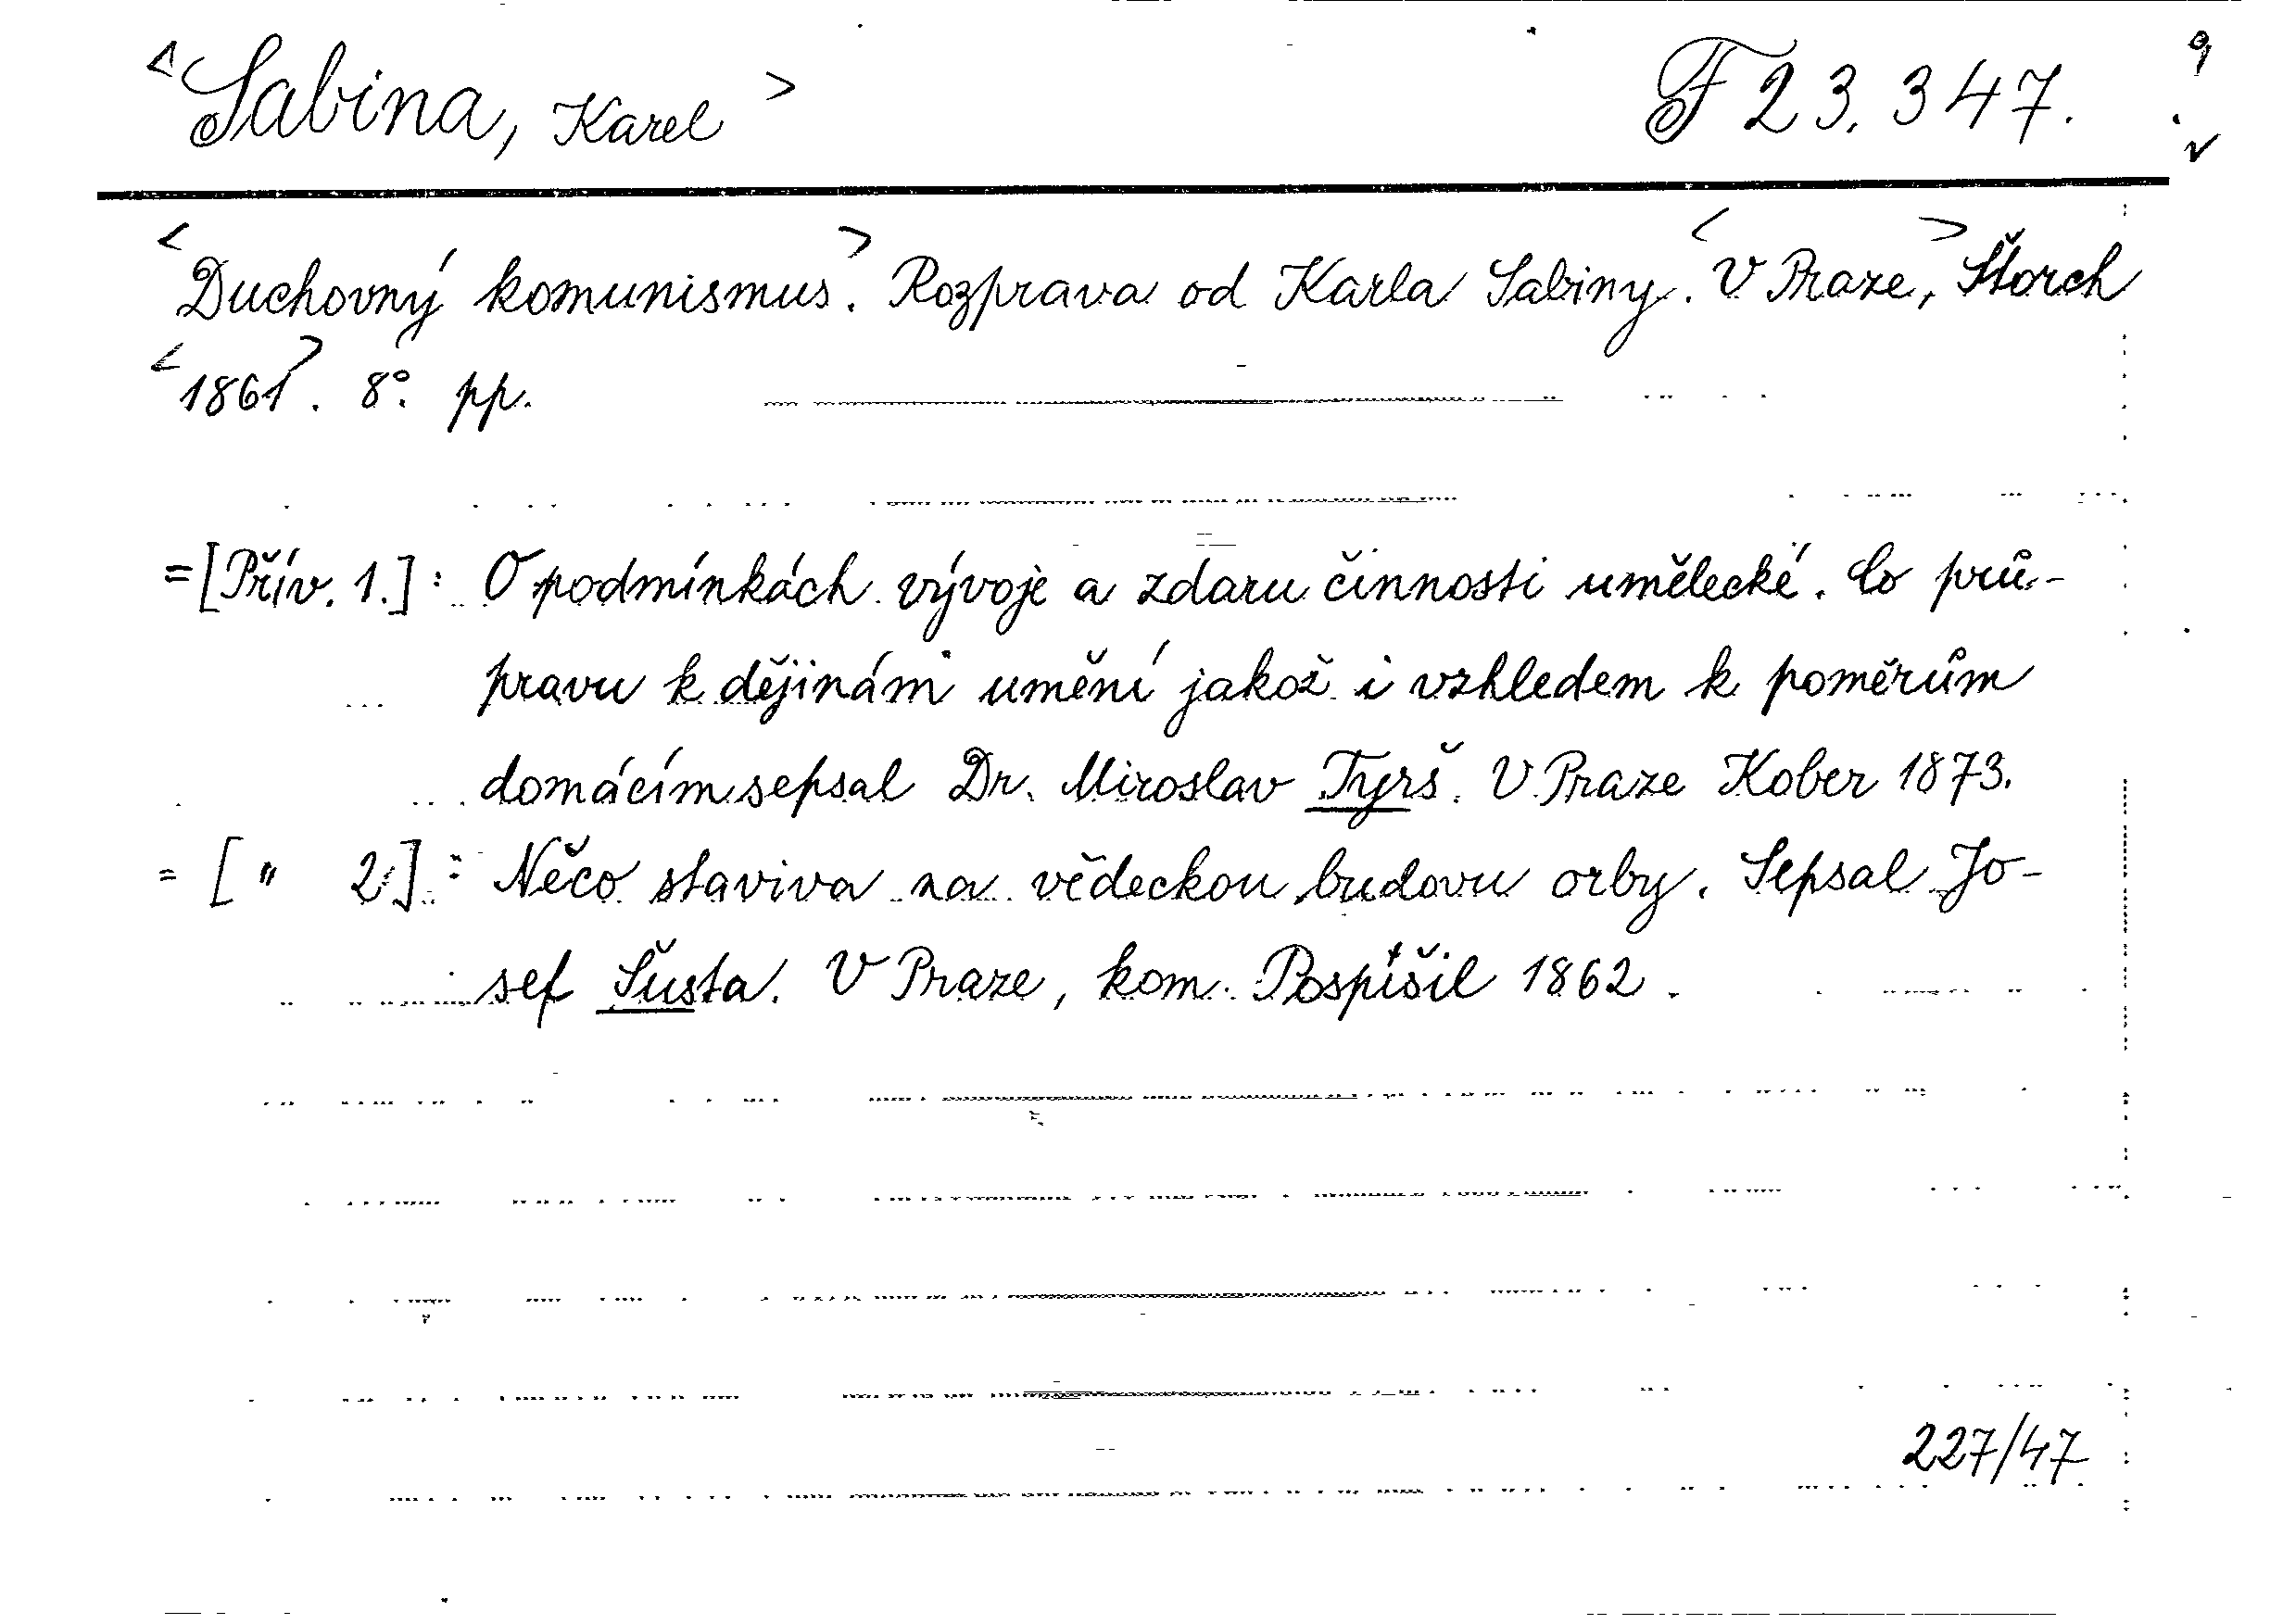 <Sabina, Karel> F 23.347.
<Duchovný komunismus>. Rozprava od Karla Sabiny. <V Praze,> Štorch
<1861>. 8°. pp.
=[Přív. 1.]: O podmínkách vývoje a zdaru činnosti umělecké. Co prů-
pravu k dějinám umění jakož i vzhledem k poměrům
domácím sepsal Dr. Miroslav Tyrš. V Praze Kober 1873.
= [ " 2]: Něco staviva na vědeckou budovu orby. Sepsal Jo-
sef Šusta. V Praze, kom. Pospíšil 1862.
227/47